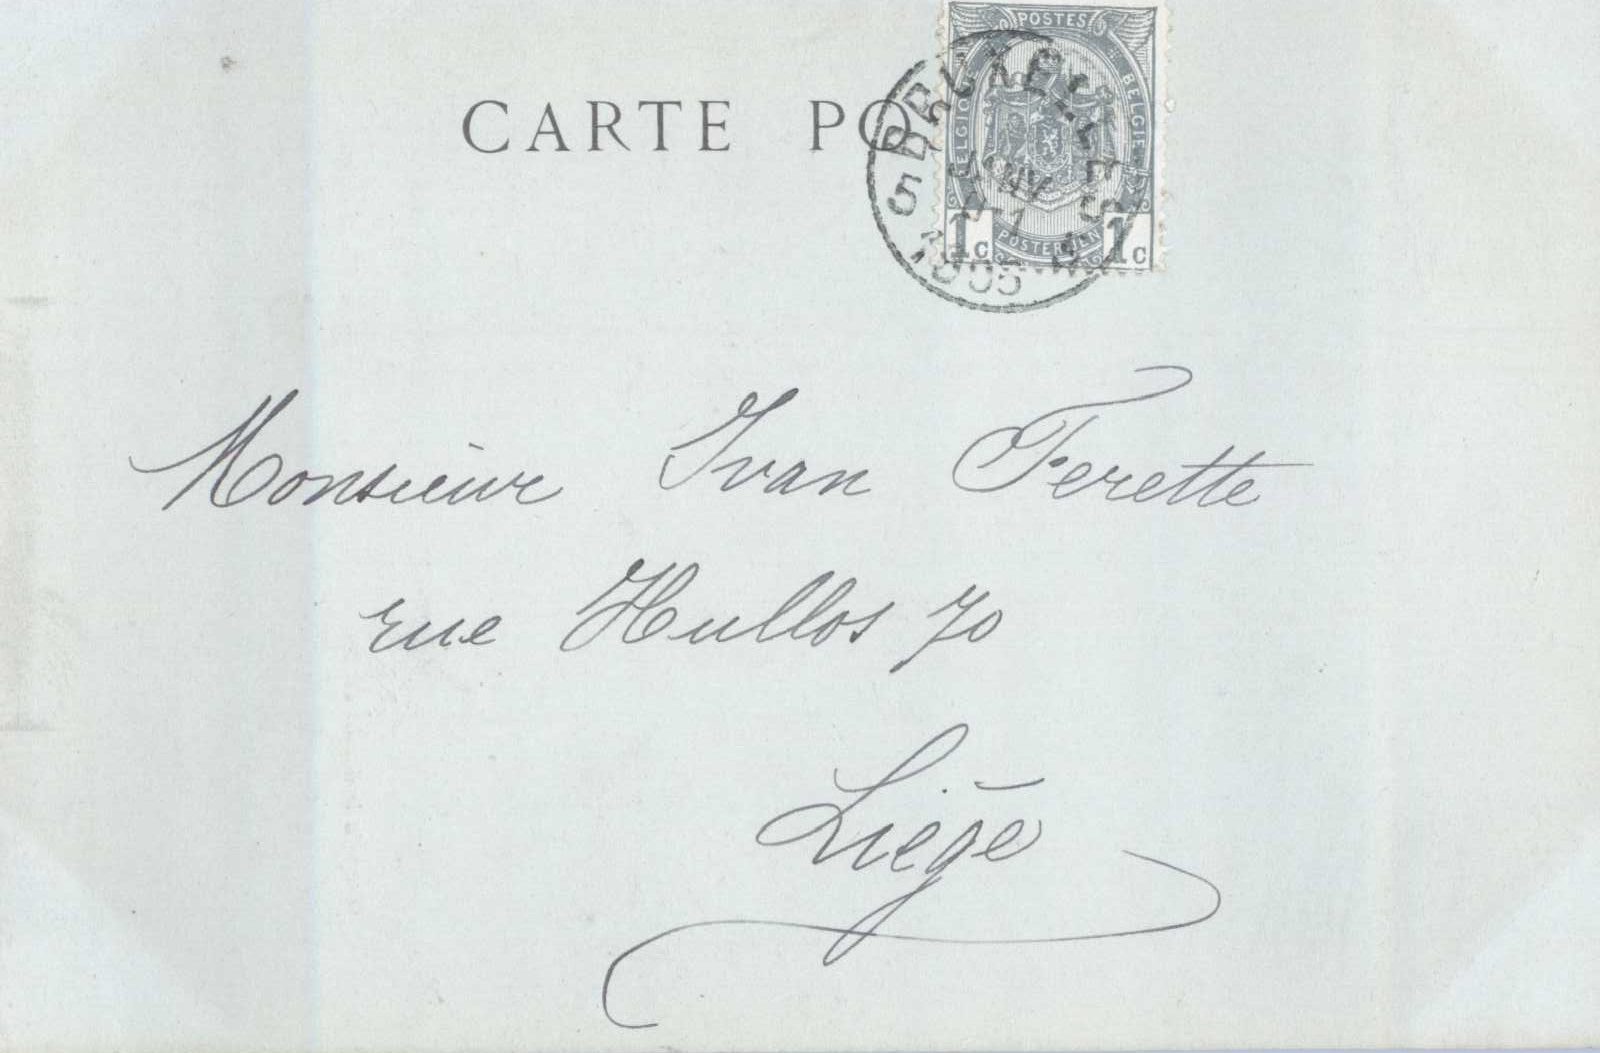 CARTE PO
POSTES
BELGIQUE BELGIE
POSTERIJEN
1c 1c
BRUXELLES 5
1905
Monsieur Ivan Ferette
rue Hullos 70
Liége